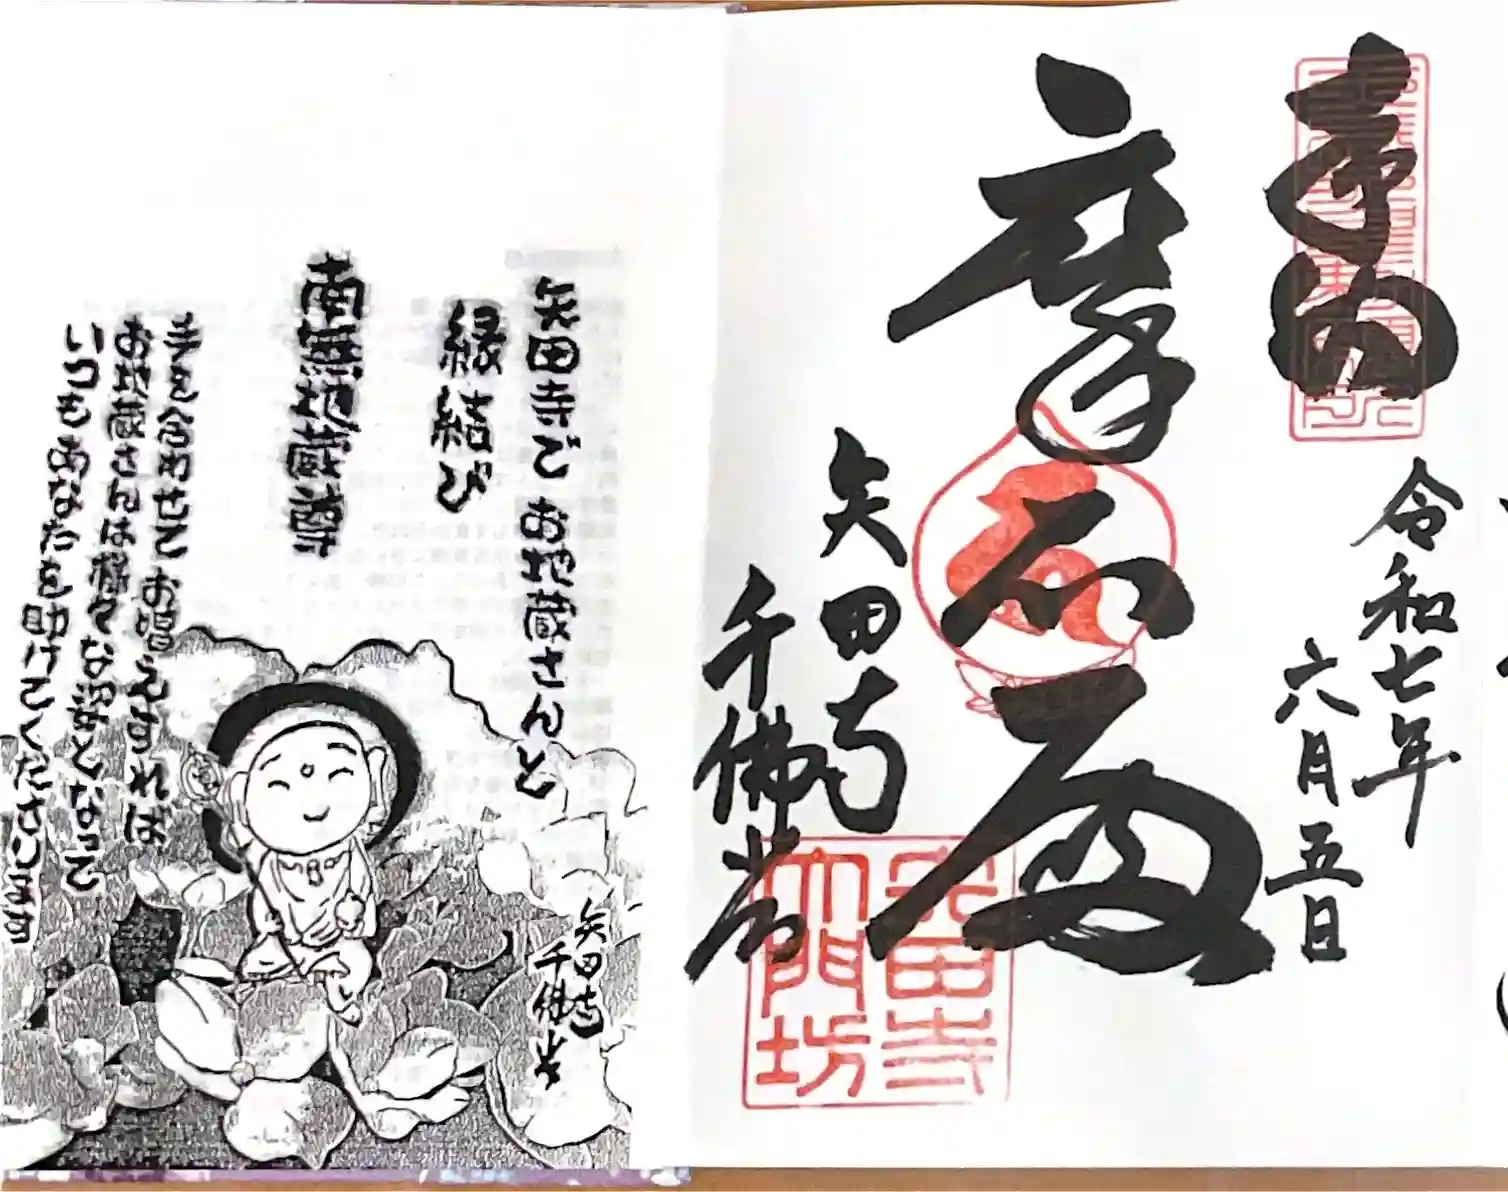 奉納
令和七年
六月五日
摩尼殿
矢田寺
千佛堂
矢田寺
大門坊
矢田寺で お地蔵さんと
縁結び
南無地蔵尊
手を合わせて お唱えすれば
お地蔵さんは様々な姿となって
いつもあなたを助けてくださいます
矢田寺
千佛堂